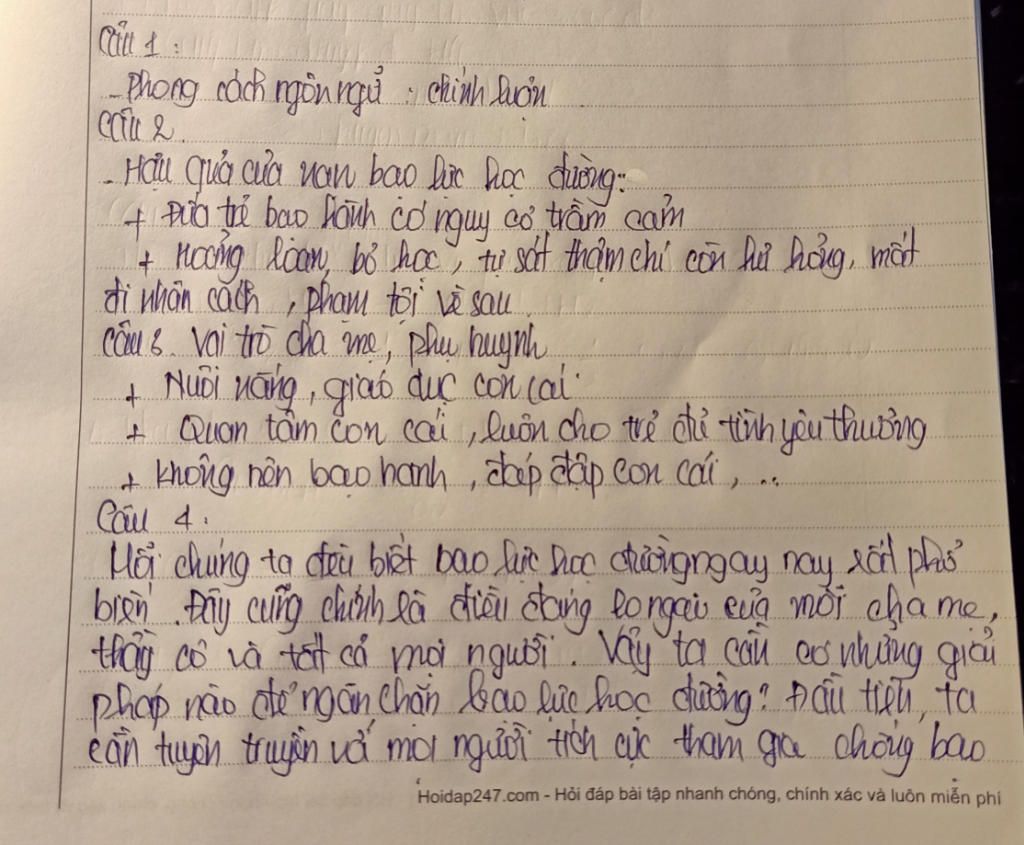 Câu 1 :
- Phong cách ngôn ngữ : chính luận
Câu 2.
- Hậu quả của nạn bạo lực học đường:
+ Đứa trẻ bạo hành có nguy cơ trầm cảm
+ Hoảng loạn, bỏ học, tự sát thậm chí còn hư hỏng, mất
đi nhân cách, phạm tội về sau.
Câu 3. Vai trò cha mẹ, phụ huynh
+ Nuôi nấng, giáo dục con cái.
+ Quan tâm con cái, luôn cho trẻ đủ tình yêu thương
+ Không nên bạo hành, đáp đập con cái, ..
Câu 4 :
Mỗi chúng ta đều biết bạo lực học đường ngay nay rất phổ
biến. Đây cũng chính là điều đáng lo ngại của mỗi cha mẹ,
thầy cô và tất cả mọi người. Vậy ta cần có những giải
pháp nào để ngăn chặn bạo lực học đường? Đầu tiên, ta
cần tuyên truyền với mọi người tích cực tham gia chống bạo
Hoidap247.com - Hỏi đáp bài tập nhanh chóng, chính xác và luôn miễn phí